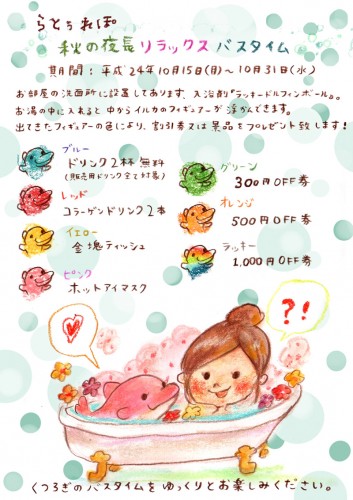 らとぅれぽ
秋の夜長リラックスバスタイム
期間：平成24年10月15日(月)～10月31日(水)
お部屋の洗面所に設置してあります、入浴剤『ラッキードルフィンボール』。
お湯の中に入れると中からイルカのフィギュアーが浮かんできます。
出てきたフィギュアーの色により、割引券又は景品をプレゼント致します！
ブルー
ドリンク2杯無料
(販売用ドリンク全て対象)
レッド
コラーゲンドリンク2本
イエロー
金塊ティッシュ
ピンク
ホットアイマスク
グリーン
300円OFF券
オレンジ
500円OFF券
ラッキー
1,000円OFF券
?!
くつろぎのバスタイムをゆっくりとお楽しみください。